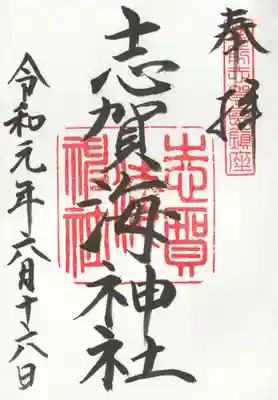 奉拝
志賀海神社
令和元年六月十六日
志賀海神社